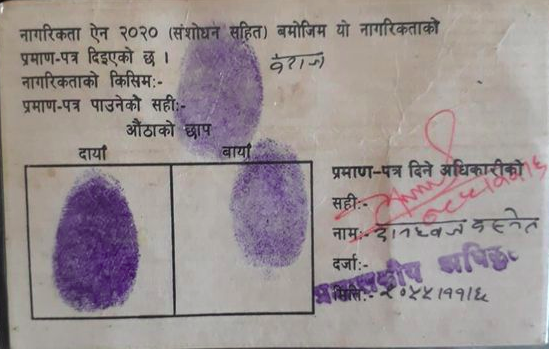 नागरिकता ऐन २०२० (संशोधन सहित) बमोजिम यो नागरिकताको
प्रमाण-पत्र दिइएको छ ।
नागरिकताको किसिम:- वंशज
प्रमाण-पत्र पाउनेको सही:-
औंठाको छाप
दायाँ बायाँ
प्रमाण-पत्र दिने अधिकारीको
सही:-
नाम:-
दर्जा:-
मिति:- २०५५।११।६